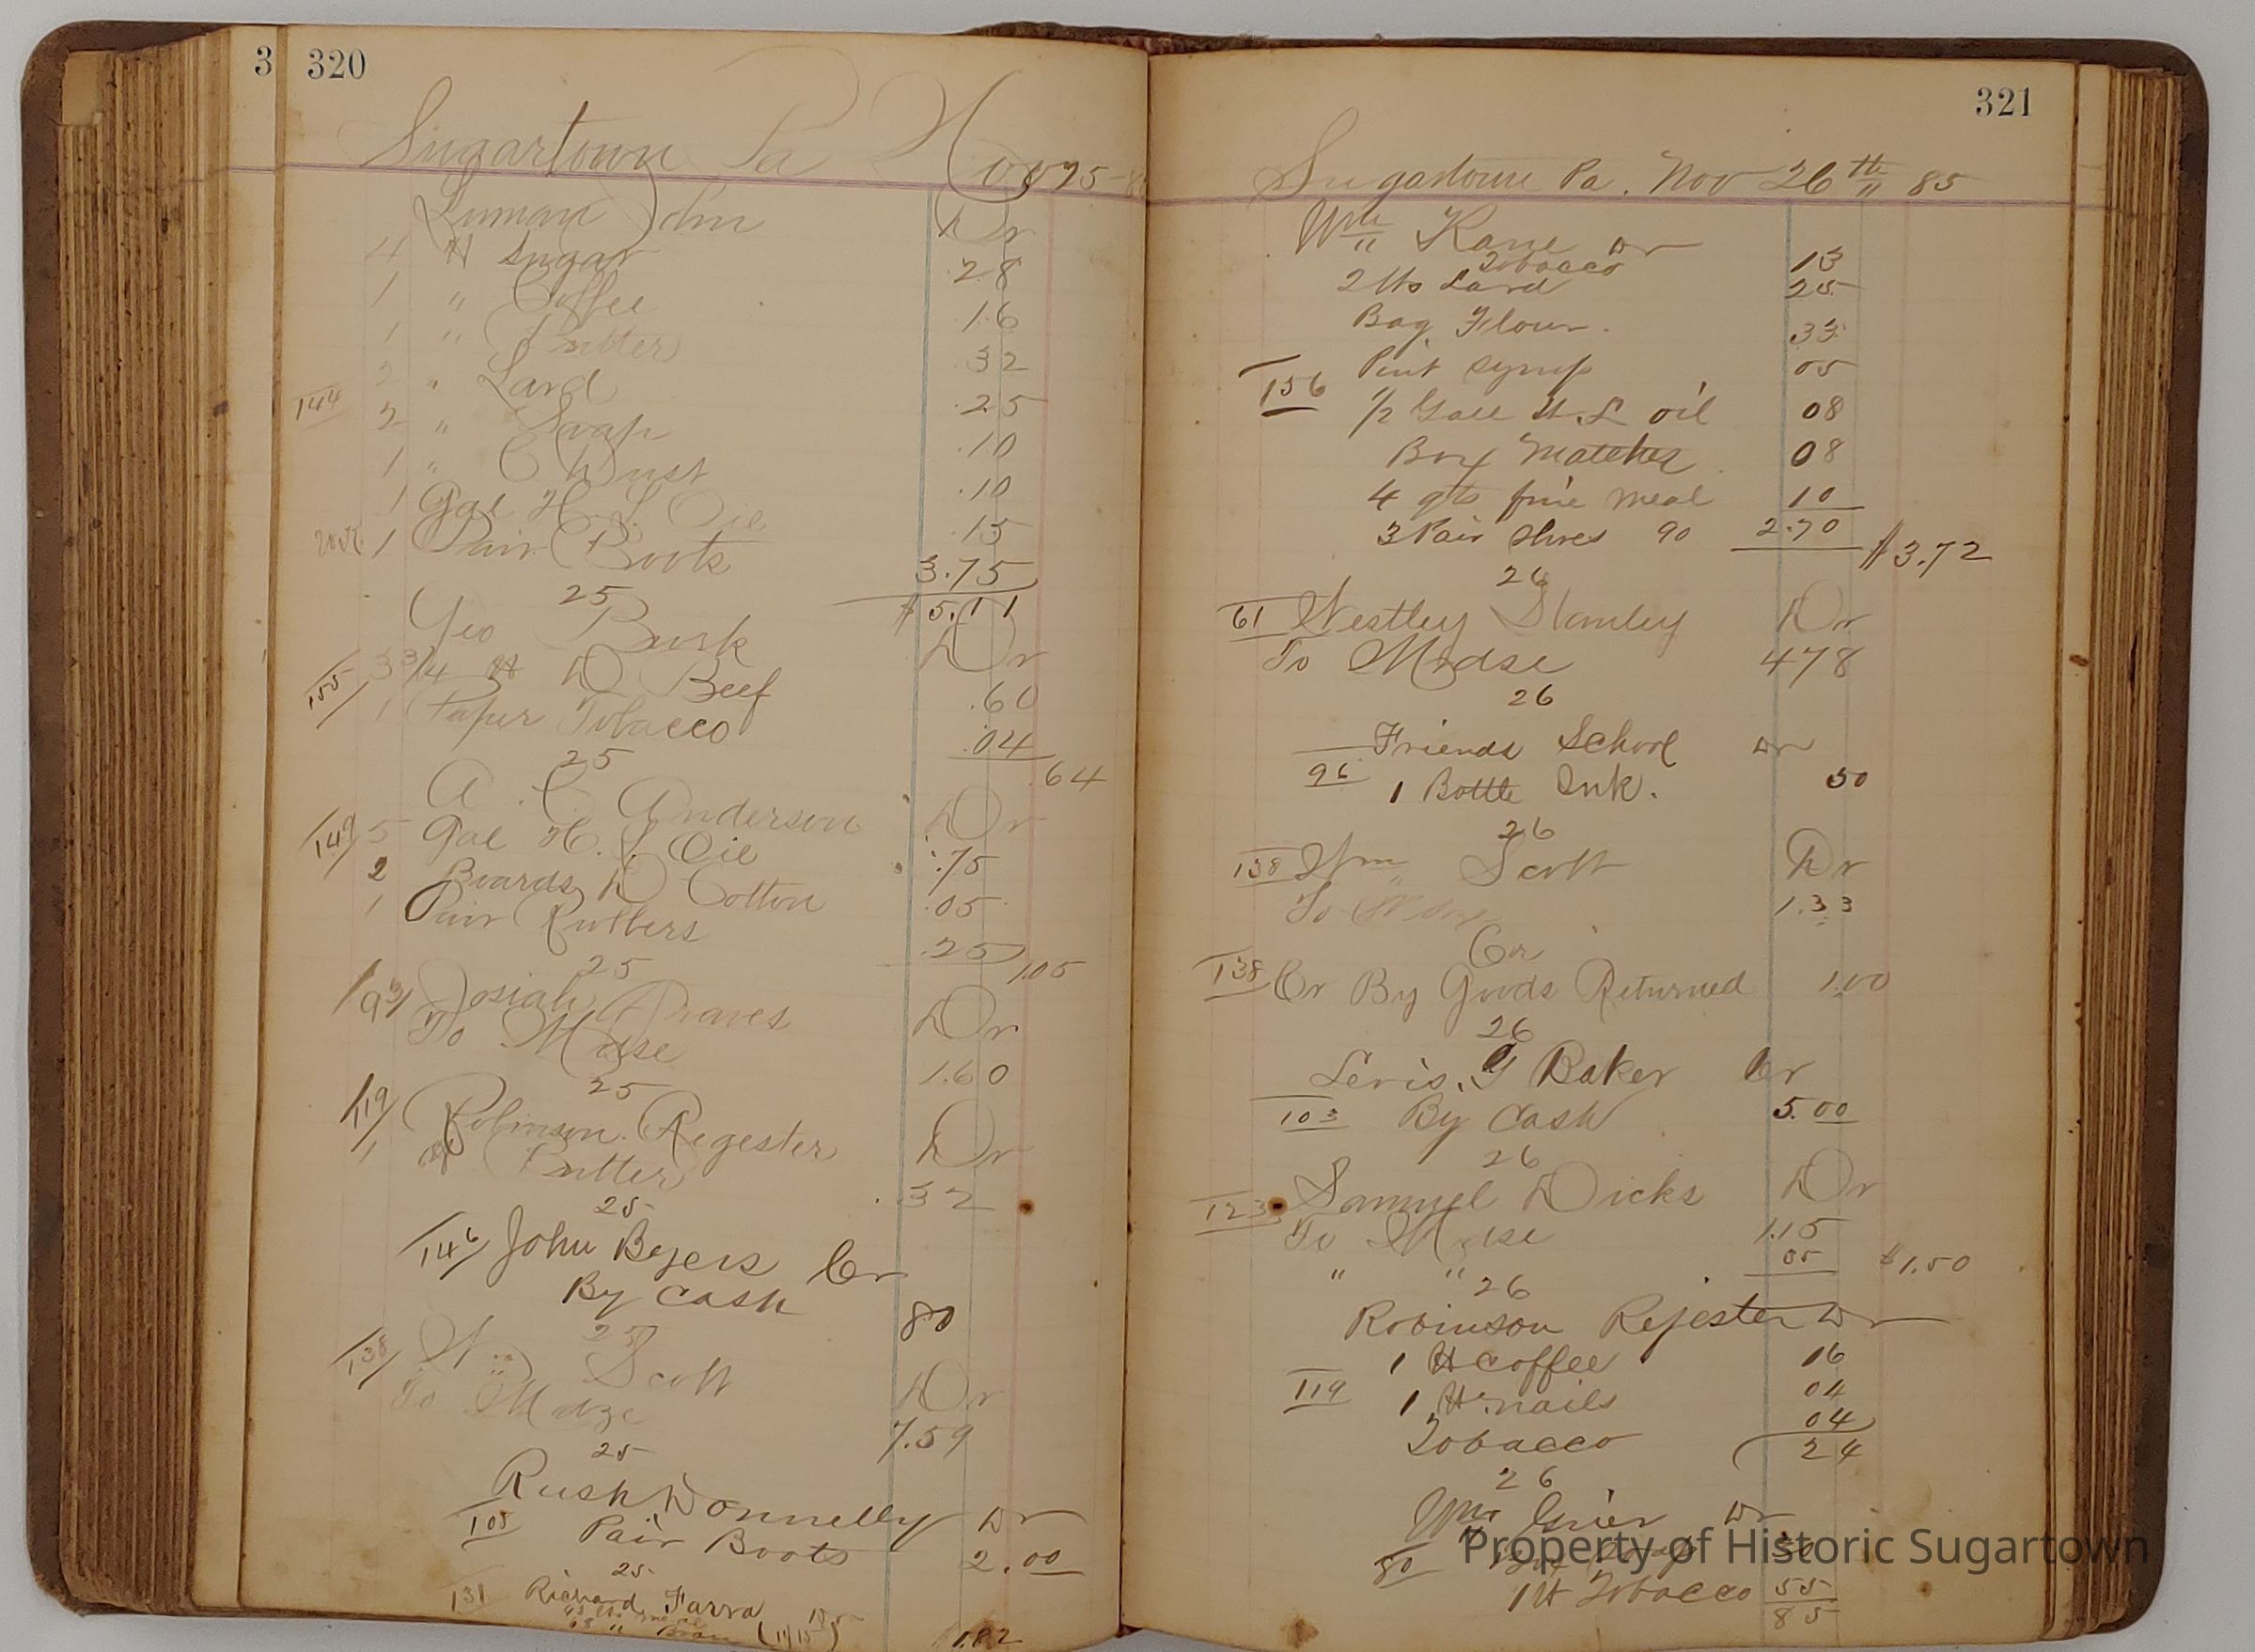 3 320
Sugartown Pa Nov 25-8
Luman John Dr
4 # Sugar .28
1 " Coffee .16
1 " Butter .32
2 " Lard .25
144
2 " Soap .10
1 " C Dust .10
1 Gal H. L Oil .15
1 Pair Boots 3.75
25 $5.11
Geo Burk Dr
155 3 3/4 # D Beef .60
1 Paper Tobacco .04
25 .64
A. C. Anderson Dr
149 5 Gal H. L Oil .75
2 Boards D Cotton .05
1 Pair Rubbers .25
25 1.05
193 Josiah Graves Dr
To Mdse 1.60
25
119 Robinson Regester Dr
1 # Butter .32
25
146 John Byers Cr
By Cash 80
25
138 Scott Dr
To Mdze 7.59
25
Rush Donnelly Dr
105 Pair Boots 2.00
25
131 Richard Farra
" Bran (11/15) 1.82
321
Sugartown Pa. Nov 26th " 85
Wm " Kane Dr
Tobacco 13
2 lbs Lard 25
Bag Flour. 33
Pint Syrup 05
156
1/2 Gall H. L oil 08
Box Matches 08
4 qts fine meal 10
3 Pair Shoes 90 2.70
$3.72
26
61 Westley Stanley Dr
To Mdse 478
26
Friends School Dr
96 1 Bottle Ink. 50
26
138 Wm Scott Dr
To 1.33
Cr
138 Cr By Goods Returned 1.00
26
Levis. G Baker Cr
103 By Cash 5.00
26
123 Samuel Dicks Dr
To Mdse 1.15
" " 35 $1.50
26
Robinson Rejester Dr
1 # Coffee 16
119 1 # nails 04
Tobacco 04
24
26
Wm Grier Dr
80 Box Soap
1 # Tobacco 55
85
Property of Historic Sugartown